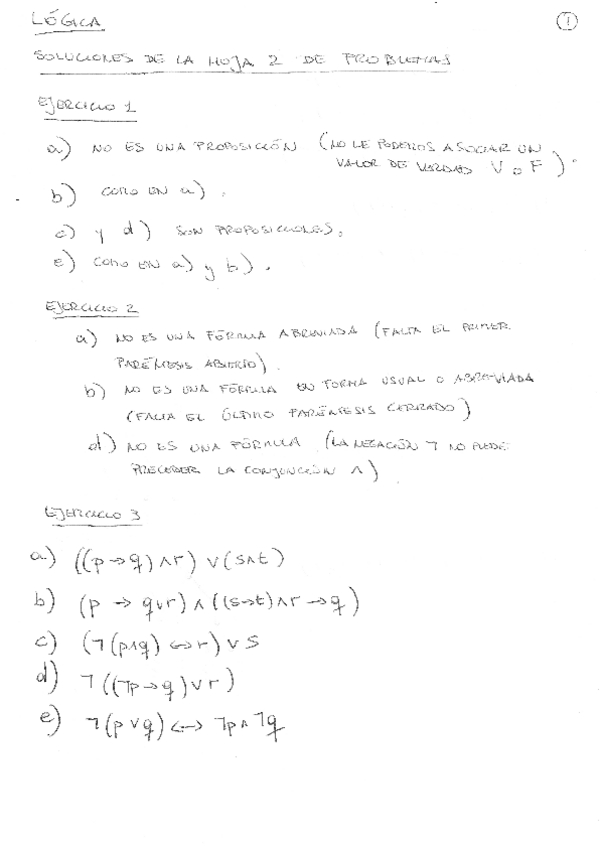 LÓGICA
1
SOLUCIONES DE LA HOJA 2 DE PROBLEMAS
EJERCICIO 1
a) NO ES UNA PROPOSICIÓN (NO LE PODEMOS ASOCIAR UN
VALOR DE VERDAD V o F).
b) COMO EN a).
c) y d) SON PROPOSICIONES.
e) COMO EN a) y b).
EJERCICIO 2
a) NO ES UNA FÓRMULA ABREVIADA (FALTA EL PRIMER
PARÉNTESIS ABIERTO).
b) NO ES UNA FÓRMULA EN FORMA USUAL O ABREVIADA
(FALTA EL ÚLTIMO PARÉNTESIS CERRADO)
d) NO ES UNA FÓRMULA (LA NEGACIÓN ¬ NO PUEDE
PRECEDER LA CONJUNCIÓN ∧)
EJERCICIO 3
a) ((p → q) ∧ r) ∨ (s ∧ t)
b) (p → q ∨ r) ∧ ((s → t) ∧ r → q)
c) (¬(p ∧ q) ↔ r) ∨ s
d) ¬((¬p → q) ∨ r)
e) ¬(p ∨ q) ↔ ¬p ∧ ¬q